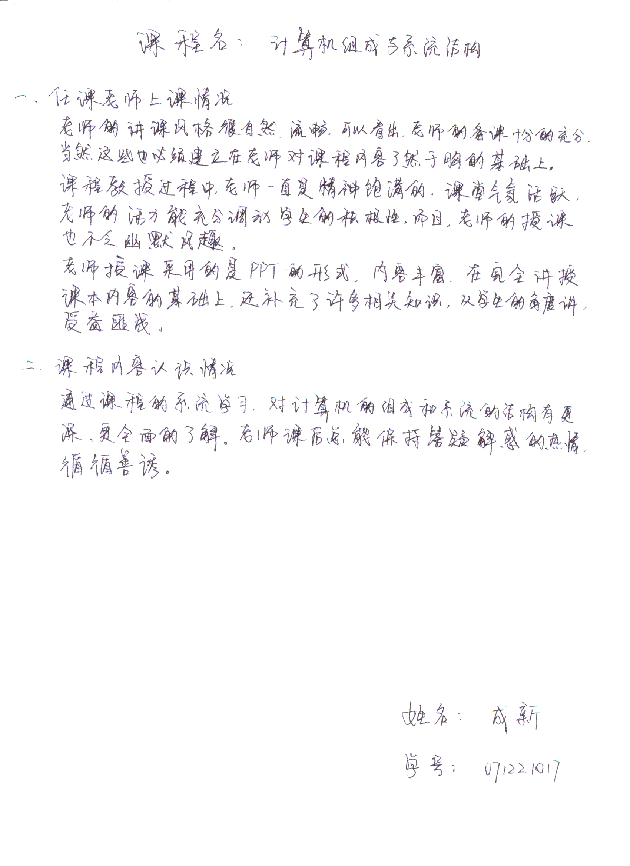 课程名：计算机组成与系统结构
一、任课老师上课情况
老师的讲课风格很自然、流畅，可以看出，老师的备课十分的充分，
当然这些也必须建立在老师对课程内容了然于胸的基础上。
课程教授过程中，老师一直是精神饱满的，课堂气氛活跃，
老师的活力能充分调动学生的积极性，而且，老师的授课
也不乏幽默风趣。
老师授课采用的是PPT的形式，内容丰富，在完全讲授
课本内容的基础上，还补充了许多相关知识，从学生的角度讲，
受益匪浅。
二、课程内容认识情况
通过课程的系统学习，对计算机的组成和系统的结构有更
深、更全面的了解。老师课后总能保持答疑解惑的热情，
循循善诱。
姓名：成新
学号：